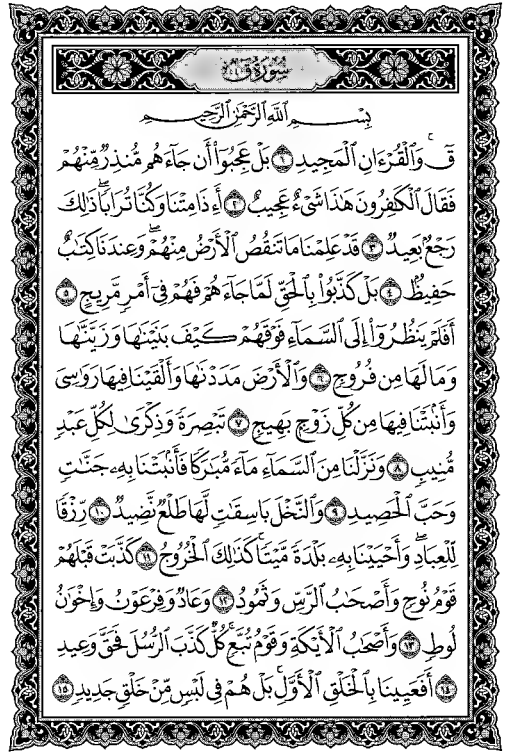 سُورَةُ قٓ
بِسْمِ ٱللَّهِ ٱلرَّحْمَٰنِ ٱلرَّحِيمِ
قٓ ۚ وَٱلْقُرْءَانِ ٱلْمَجِيدِ ١ بَلْ عَجِبُوٓا۟ أَن جَآءَهُم مُّنذِرٌ مِّنْهُمْ
فَقَالَ ٱلْكَٰفِرُونَ هَٰذَا شَىْءٌ عَجِيبٌ ٢ أَءِذَا مِتْنَا وَكُنَّا تُرَابًا ۖ ذَٰلِكَ
رَجْعٌۢ بَعِيدٌ ٣ قَدْ عَلِمْنَا مَا تَنقُصُ ٱلْأَرْضُ مِنْهُمْ ۖ وَعِندَنَا كِتَٰبٌ
حَفِيظٌۢ ٤ بَلْ كَذَّبُوا۟ بِٱلْحَقِّ لَمَّا جَآءَهُمْ فَهُمْ فِىٓ أَمْرٍ مَّرِيجٍ ٥
أَفَلَمْ يَنظُرُوٓا۟ إِلَى ٱلسَّمَآءِ فَوْقَهُمْ كَيْفَ بَنَيْنَٰهَا وَزَيَّنَّٰهَا
وَمَا لَهَا مِن فُرُوجٍ ٦ وَٱلْأَرْضَ مَدَدْنَٰهَا وَأَلْقَيْنَا فِيهَا رَوَٰسِىَ
وَأَنۢبَتْنَا فِيهَا مِن كُلِّ زَوْجٍۭ بَهِيجٍ ٧ تَبْصِرَةً وَذِكْرَىٰ لِكُلِّ عَبْدٍ
مُّنِيبٍ ٨ وَنَزَّلْنَا مِنَ ٱلسَّمَآءِ مَآءً مُّبَٰرَكًا فَأَنۢبَتْنَا بِهِۦ جَنَّٰتٍ
وَحَبَّ ٱلْحَصِيدِ ٩ وَٱلنَّخْلَ بَاسِقَٰتٍ لَّهَا طَلْعٌ نَّضِيدٌ ١٠ رِّزْقًا
لِّلْعِبَادِ ۖ وَأَحْيَيْنَا بِهِۦ بَلْدَةً مَّيْتًا ۚ كَذَٰلِكَ ٱلْخُرُوجُ ١١ كَذَّبَتْ قَبْلَهُمْ
قَوْمُ نُوحٍ وَأَصْحَٰبُ ٱلرَّسِّ وَثَمُودُ ١٢ وَعَادٌ وَفِرْعَوْنُ وَإِخْوَٰنُ
لُوطٍ ١٣ وَأَصْحَٰبُ ٱلْأَيْكَةِ وَقَوْمُ تُبَّعٍ ۚ كُلٌّ كَذَّبَ ٱلرُّسُلَ فَحَقَّ وَعِيدِ
١٤ أَفَعَيِينَا بِٱلْخَلْقِ ٱلْأَوَّلِ ۚ بَلْ هُمْ فِى لَبْسٍ مِّنْ خَلْقٍ جَدِيدٍ ١٥